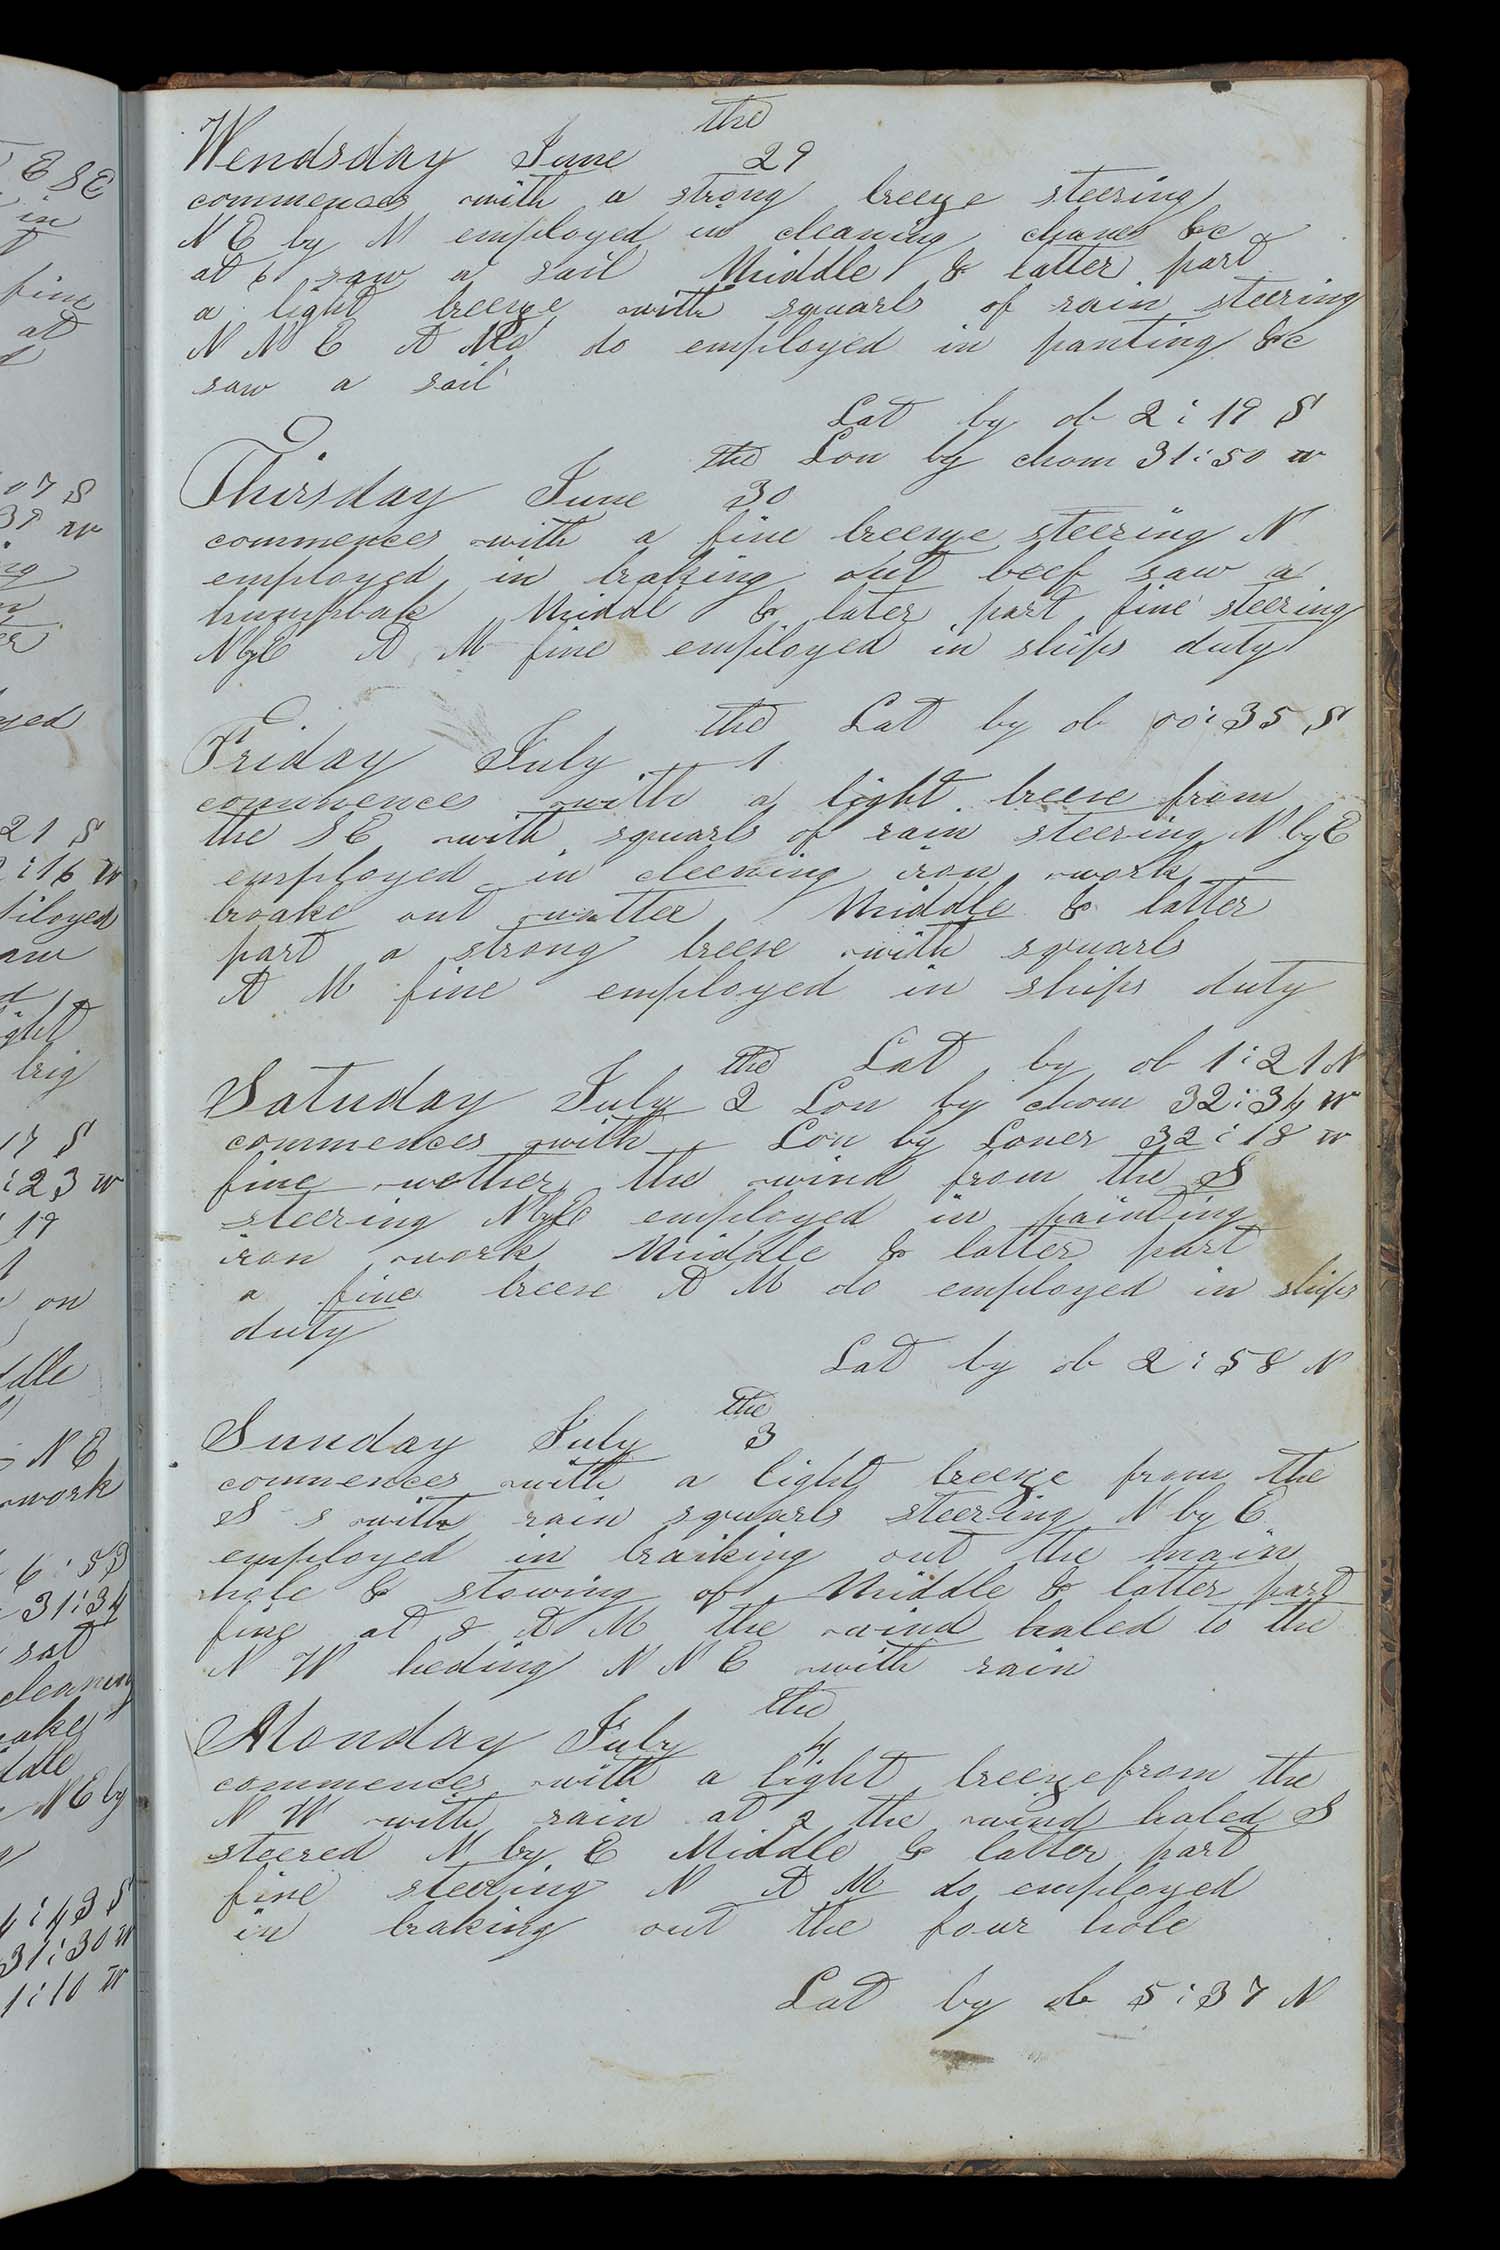 the
Wendsday June 29
commences with a strong breeze steering
N E by N employed in cleaning chanes &c
at 6 saw a sail Middle & latter part
a light breeze with squarls of rain steering
N N E A M do employed in panting &c
saw a sail
Lat by ob 2:19 S
the Lon by chom 31:50 W
Thirsday June 30
commences with a fine breeze steering N
employed in braking out beef saw a
humpbak Middl & later part fine steering
N by E A M fine employed in ships duty
the Lat by ob 00:35 S
Friday July 1
commences with a light breese from
the S E with squarls of rain steering N by E
employed in cleening iron work
broake out watter Middle & latter
part a strong breese with squarls
A M fine employed in ships duty
the Lat by ob 1:21 N
Satuday July 2 Lon by chom 32:34 W
commences with Lon by Loner 32:18 W
fine wether the wind from the S
steering N by E employed in painting
iron work Middle & latter part
a fine breese A M do employed in ships
duty
Lat by ob 2:58 N
the
Sunday July 3
commences with a light breeze from the
S s with rain squarls steering N by E
employed in braiking out the main
hole & stowing of Middle & latter part
fine at 8 A M the wind haled to the
N W heding N N E with rain
the
Monday July 4
commences with a light breeze from the
N W with rain at 2 the wind haled S
steered N by E Middle & latter part
fine steering N A M do employed
in braking out the four hole
Lat by ob 5:37 N